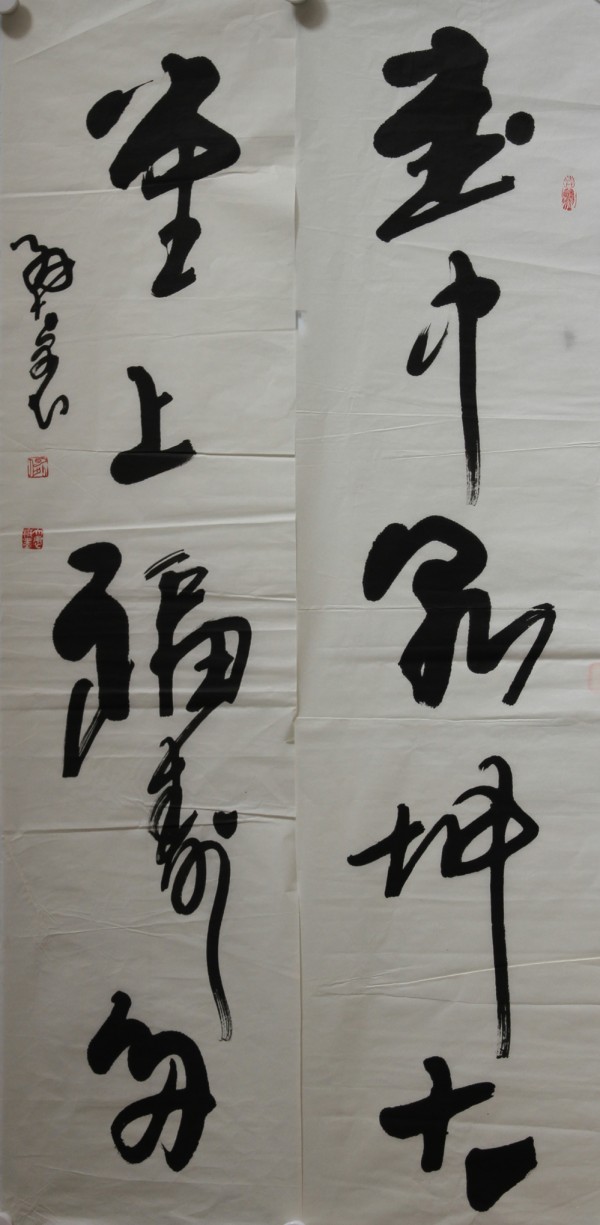 壶中乾坤大
堂上福壽多